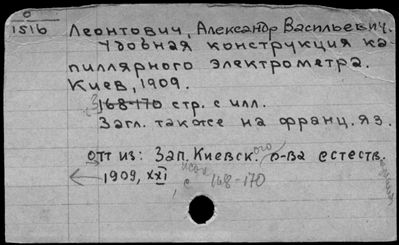 О
1516
Леонтович, Александр Васильевич.
Удобная конструкция ка-
пиллярного электрометра.
Киев, 1909.
3 168-170 стр. с илл.
Загл. также на франц. яз.
отт из: Зап. Киевск.ого о-ва естеств.
1909, XXI
, с 168-170